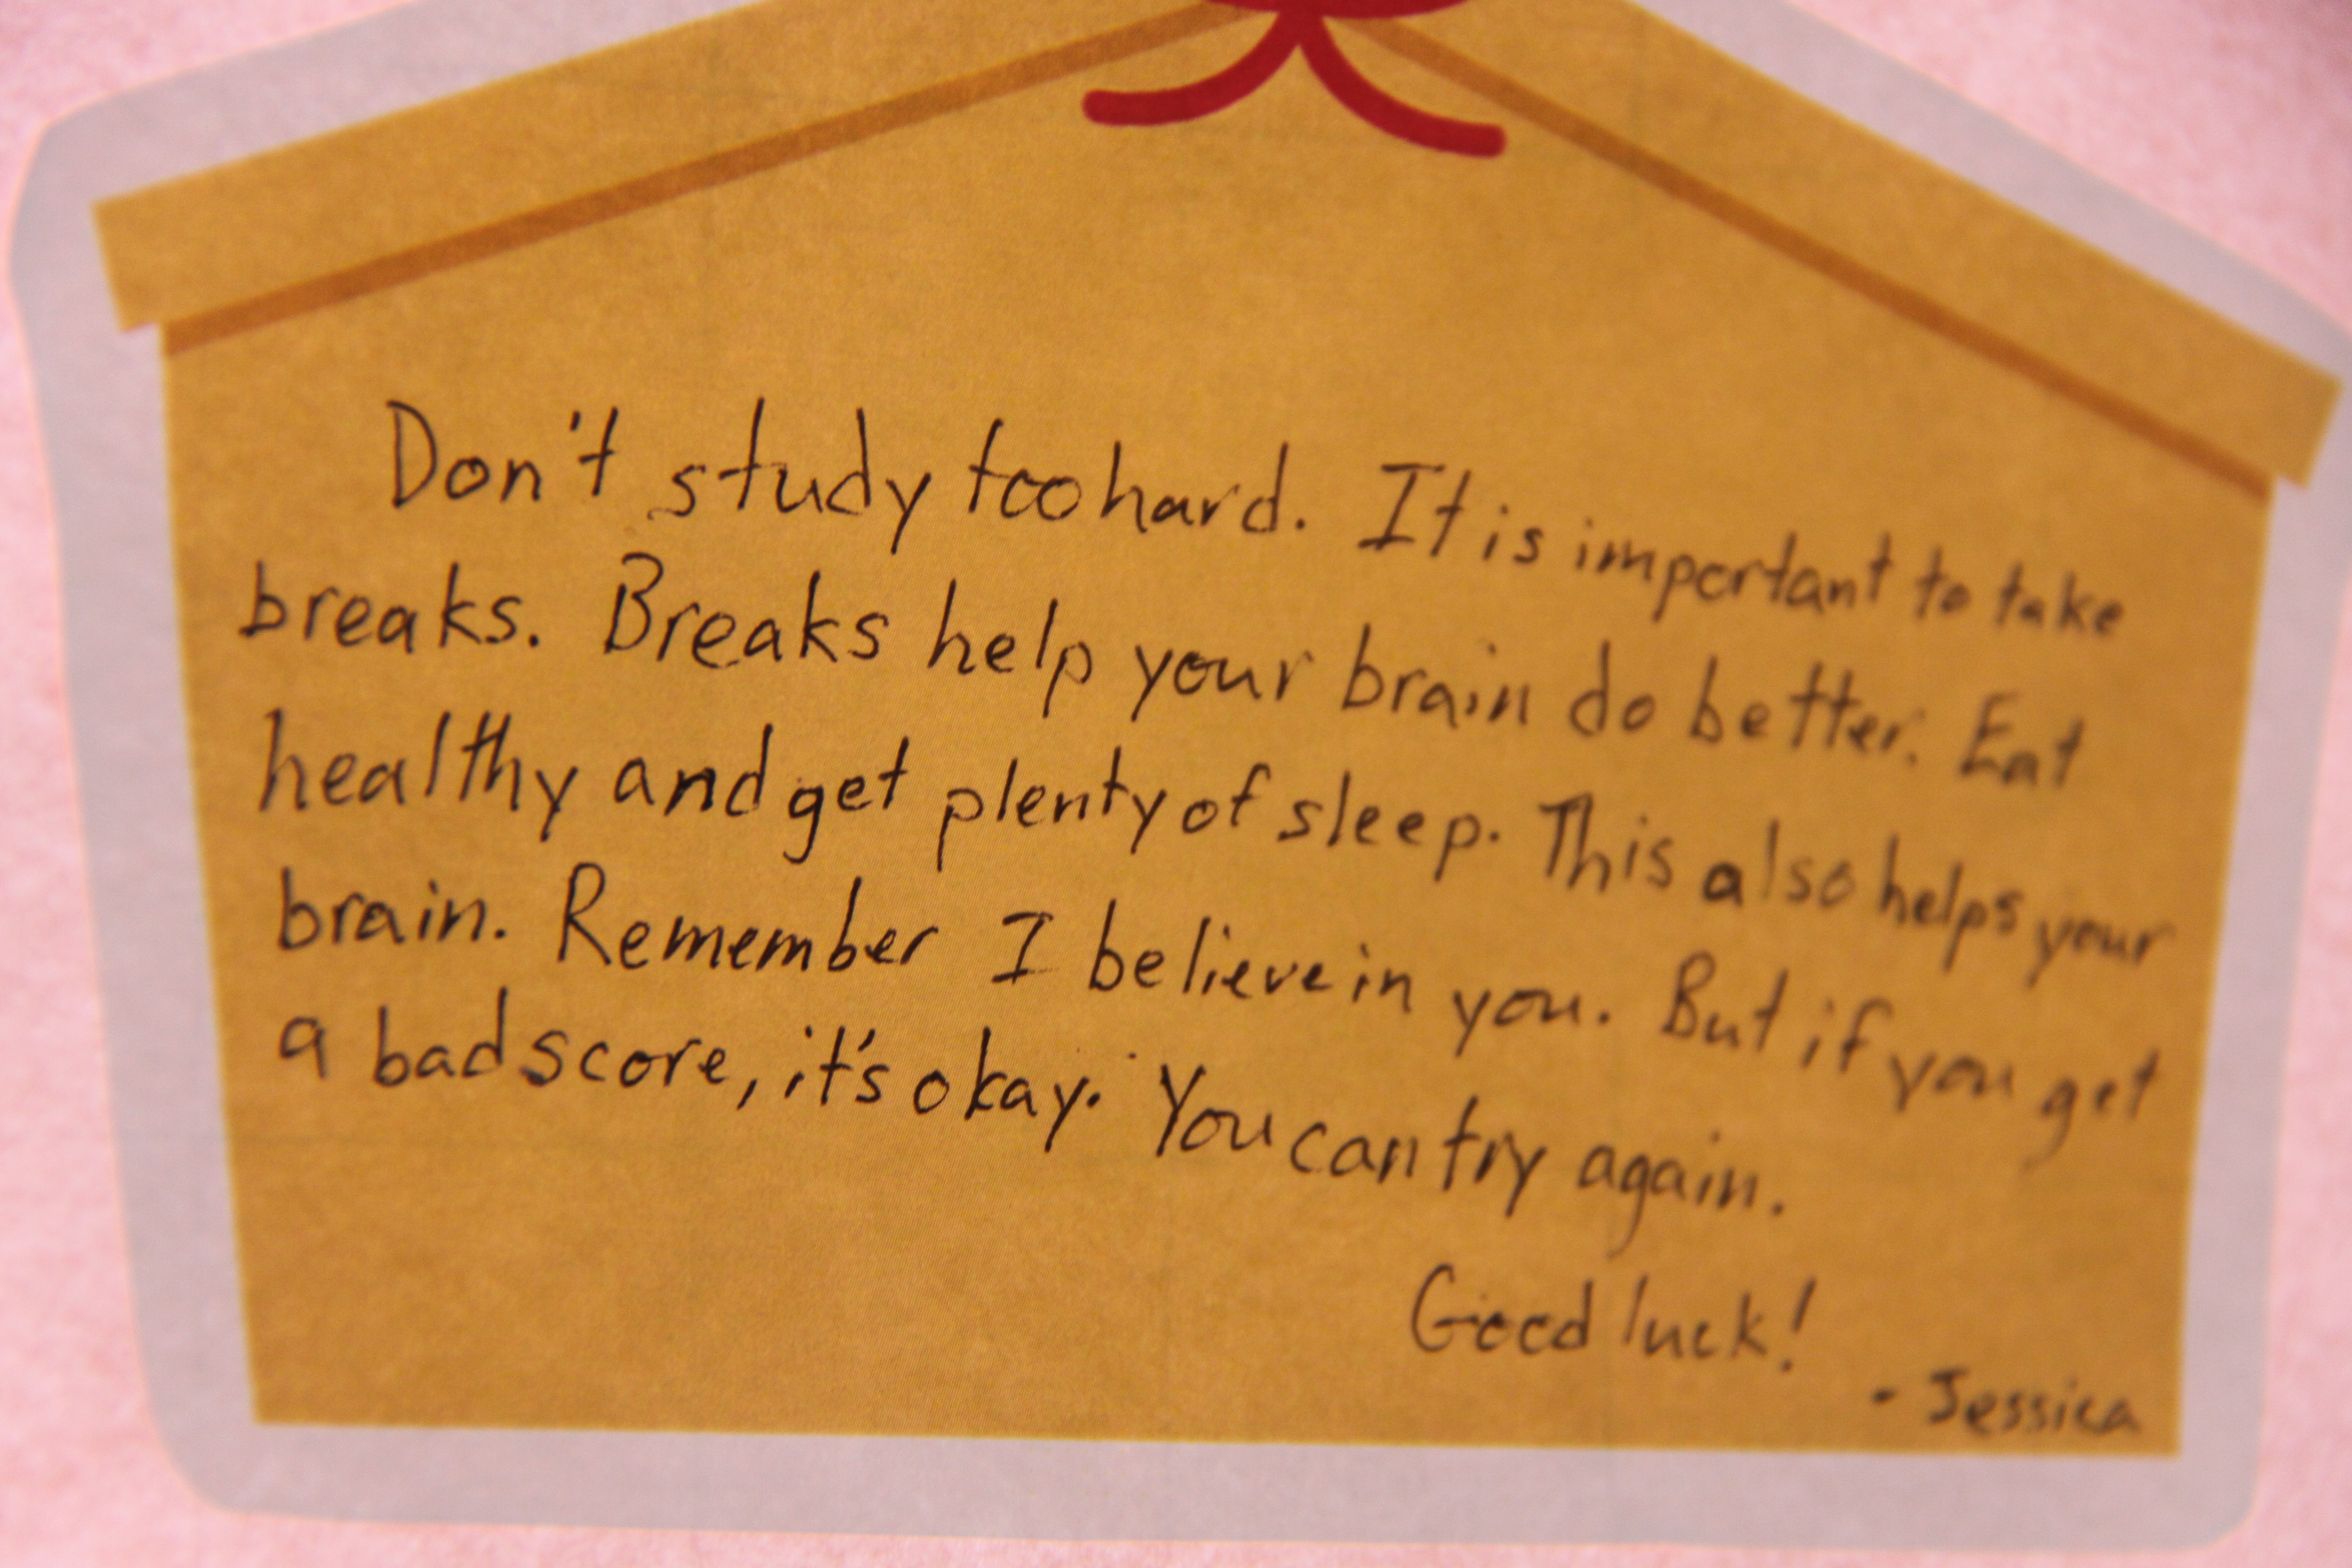 Don't study too hard. It is important to take
breaks. Breaks help your brain do better. Eat
healthy and get plenty of sleep. This also helps your
brain. Remember I believe in you. But if you get
a bad score, it's okay. You can try again.
Good luck!
- Jessica